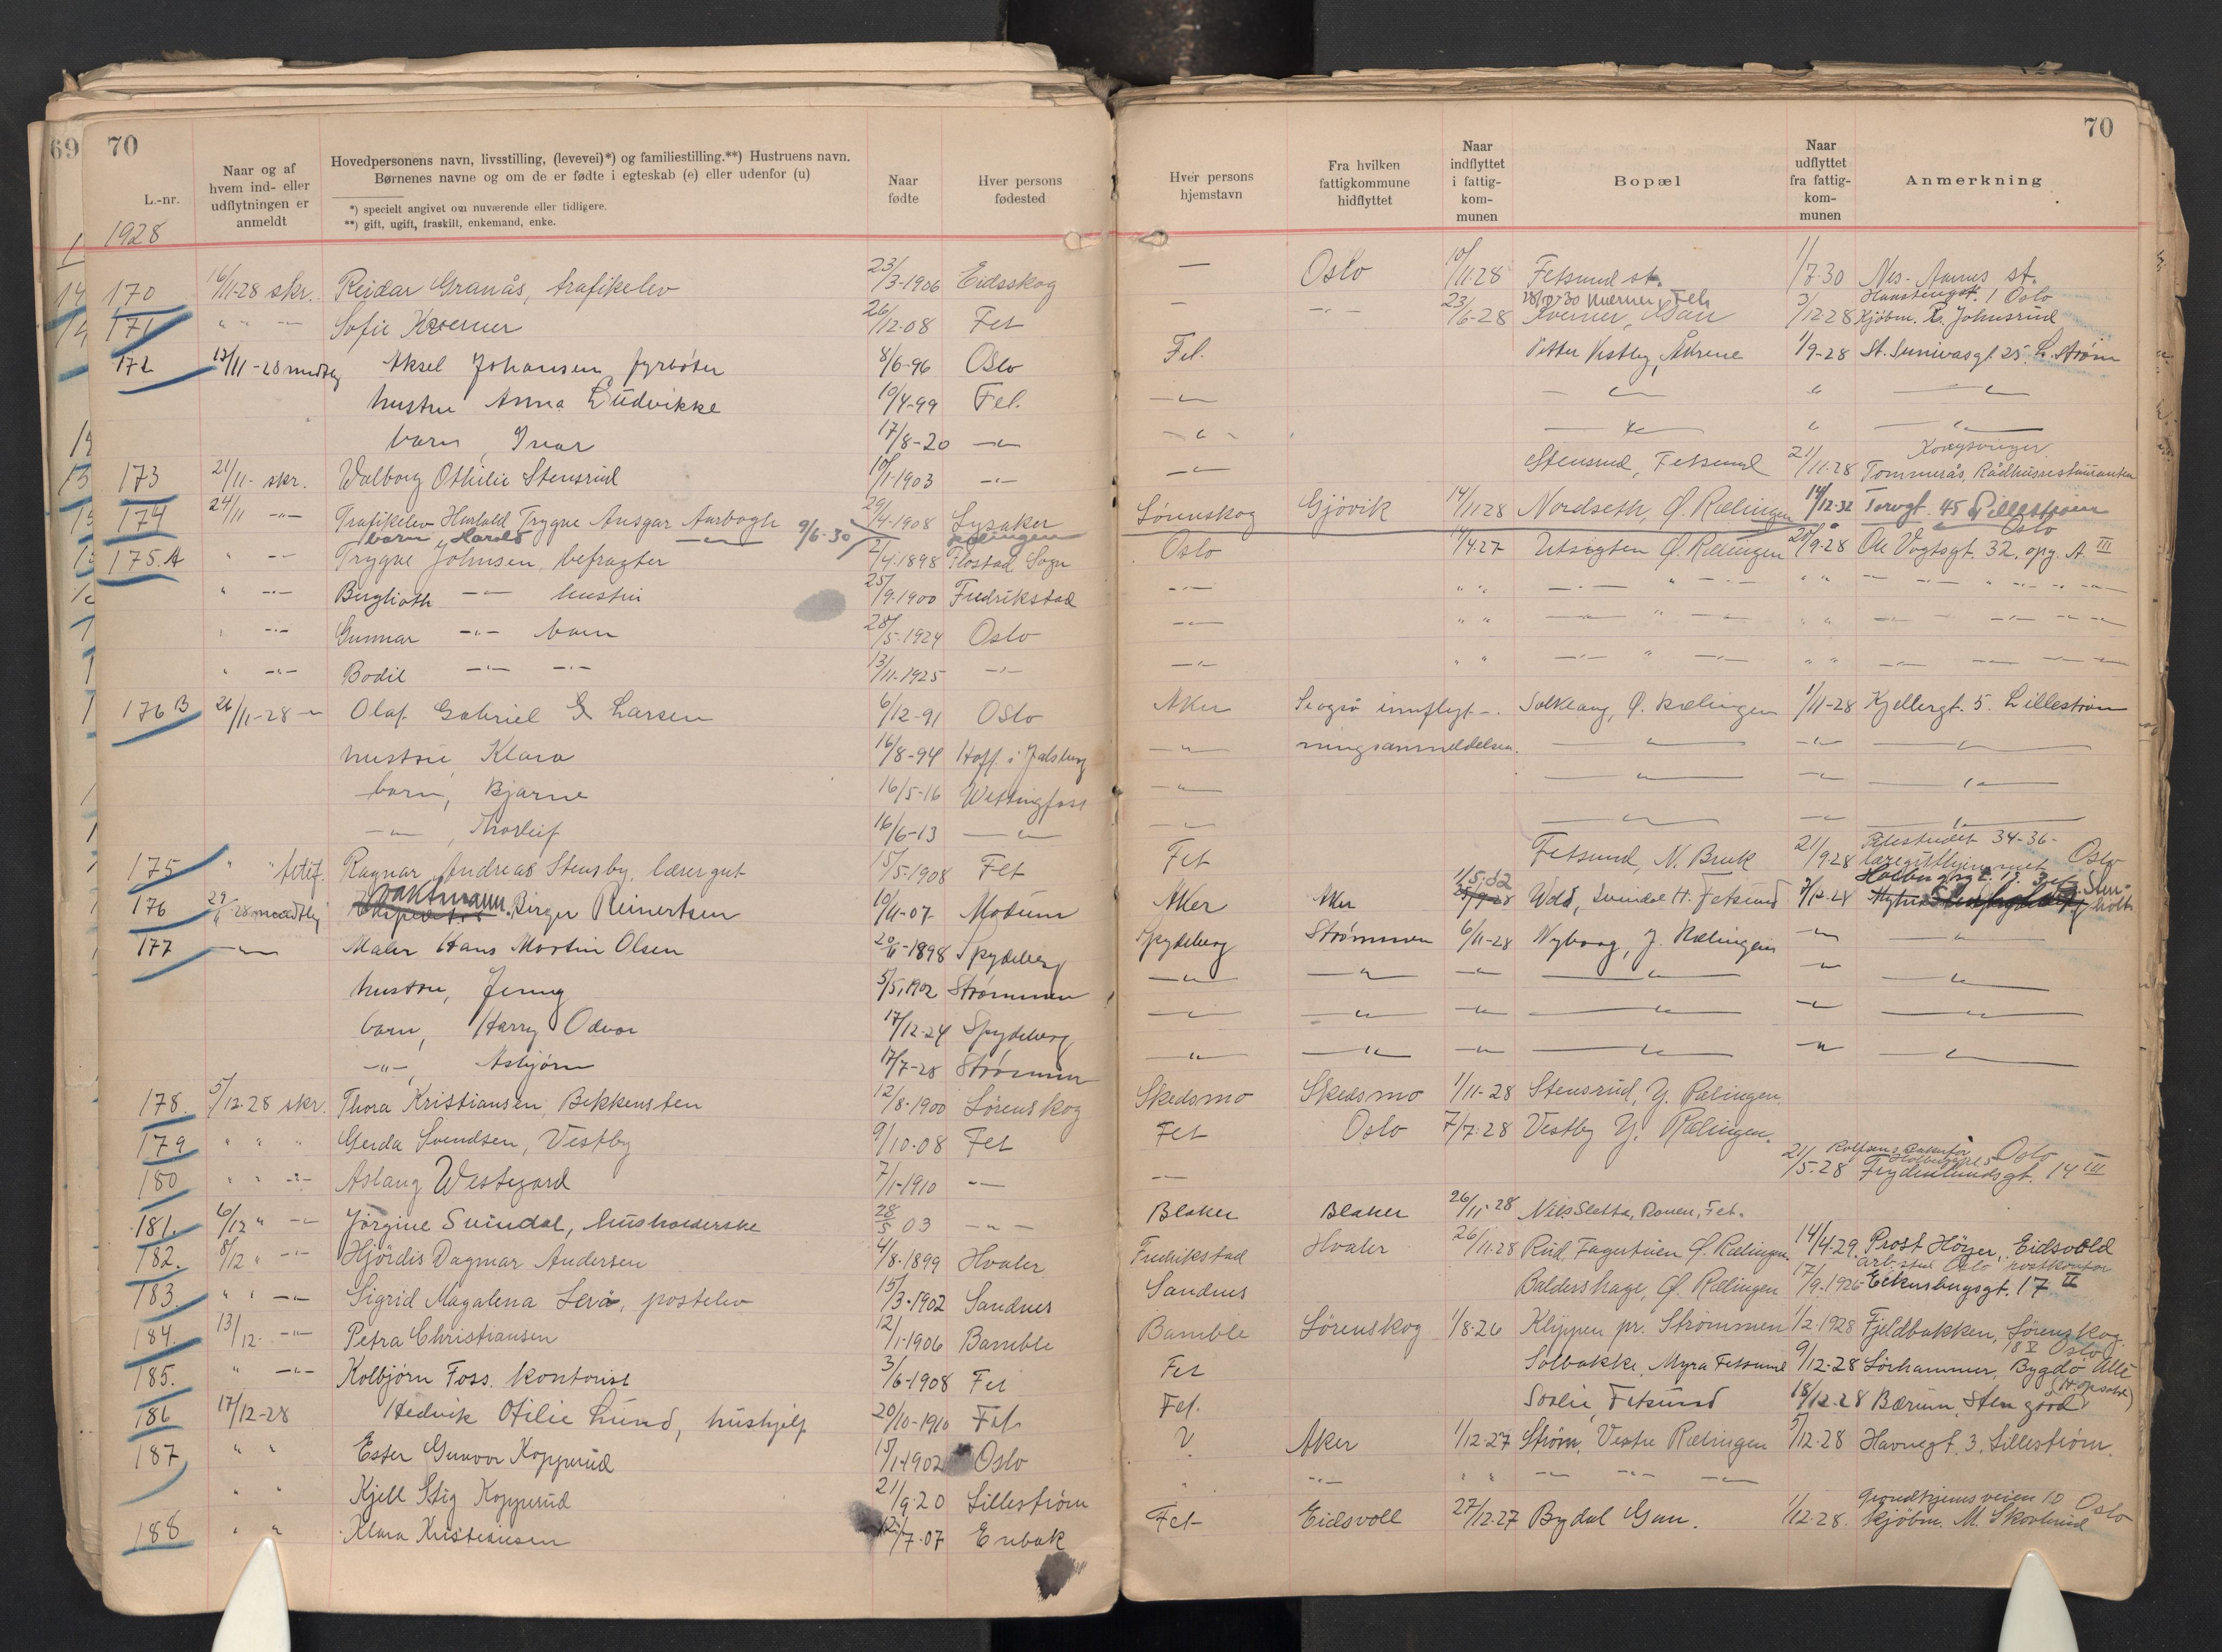 69 70
L.-nr.
Naar og af hvem ind- eller udflytningen er anmeldt
Hovedpersonens navn, livsstilling, (levevei)*) og familiestilling.**) Hustruens navn.
Børnenes navne og om de er fødte i egteskab (e) eller udenfor (u)
*) specielt angivet om nuværende eller tidligere.
**) gift, ugift, fraskilt, enkemand, enke.
Naar fødte
Hver persons fødested
Hver persons hjemstavn
Fra hvilken fattigkommune hidflyttet
Naar indflyttet i fattig-kom-munen
Bopæl
Naar udflyttet fra fattig-kom-munen
Anmerkning
70
1928
170 16/11-28 skr. Reidar Granås, trafikelev 23/3-1906 Eidsskog — Oslo 10/11.28 Fetsund st. 1/7-30 Nes- Aarnes st.
171 " " — Sofie Kverner 26/12.08 Fet — —"— 23/6-28 Kverner, Gan 3/12-28 Kjøbm. R. Johnsrud Oslo
172 13/11-28 mundtlig Aksel Johansen fyrbøter 8/6-96 Oslo Fet. Petter Vestby, Åkrene 1/9-28 St. Sunivasgt. 25. L.strøm
hustru Anna Ludvikke 10/4-99 Fet. —"— —"— " —"—
barn, Ivar 17/8-20 —"— —"— —"— " —"—
173 21/11- skr. Valborg Othilie Stensrud 10/1-1903 —"— —"— Stensrud, Fetsund 21/11-28 Tommerås, Rådhusrestauranten Kongsvinger.
174 24/11 —"— Trafikelev Harald Trygve Ansgar Aarbogh 29/4-1908 Lysaker Lørenskog Gjøvik 14/11.28 Nordseth, Ø. Rælingen 14/12-32 Torvgt. 45 Lillestrøm
barn, Harald —"— 9/6-30 Rælingen
175.A " —"— Trygve Johnsen, befragter 2/4.1898 Flostad Sogn Oslo 14/4.27 Utsigten Ø. Rælingen 20/9-28 Ole Vogtsgt. 32, opg. A. III Oslo
" —"— Berglioth —"— hustru 25/9.1900 Fredrikstad —"— " " —"— " —"— " " —"—
" —"— Gunnar —"— barn 28/5-1924 Oslo —"— " " —"— " —"— " " —"—
" —"— Bodil —"— —"— 13/11-1925 —"— —"— " " —"— " —"— " " —"—
176 B 26/11-28 — Olaf Gabriel Larsen 6/12-91 Oslo Aker Se også innflyt- Solkeaug, Ø. Rælingen 1/11-28 Kjellergt. 5. Lillestrøm
hustru, Klara 16/8-94 Hoff i Jalsberg —"— ningsanmeldelsen. —"— —"— —"—
barn, Bjarne 16/5-16 Wittingfoss —"— —"— —"— —"—
—"—, Thorleif 16/6-13 —"— —"— —"— —"— —"—
175 " " Ragnar Andreas Stensby, lærergut 15/5-1908 Fet Fet Fetsund, N. Bruk 21/9-28 34-36- Oslo
176 29/11-28 mundtlig vaktmann Birger Reinertsen 10/11-07 Modum Aker Aker 1/5.32 25/9-28 Wold, Svindal H. Fetsund 3/12-28
177 —"— Maler Hans Martin Olsen 20/11-1898 Spydeberg Spydeberg Strømmen 6/11-28 Nyborg, Y. Rælingen —"— —"—
hustru, Jenny 5/5.1902 Strømmen —"— —"— —"— —"— —"— —"—
barn, Harry Odvar 17/12-24 Spydeberg —"— —"— —"— —"— —"— —"—
—"—, Asbjørn 17/7-28 Strømmen —"— —"— —"— —"— —"— —"—
178. 5/12-28 skr. Thora Kristiansen, Bekkensten 12/8-1900 Lørenskog Skedsmo Skedsmo 1/11-28 Stensrud, Y. Rælingen
179 " " " Gerda Svendsen, Vestby 9/10-08 Fet Fet Oslo 7/7-28 Vestby Y. Rælingen.
180 " " —"— Aslaug Westgaard 7/1-1910 —"— —"— 21/5-28 Frydenlundsgt. 14 III Oslo
181. 6/12 " —"— Jørgine Svindal, husholderske 28/5 03 —"— Blaker Blaker 26/11-28 Nils Sletta, Roven, Fet.
182. 8/12 " —"— Hjørdis Dagmar Andersen 4/8-1899 Hvaler Fredrikstad Hvaler 26/11-28 Rud, Fagertun Ø. Rælingen 14/4-29. Prost Höyer, Eidsvold
183. " " —"— Sigrid Magalena Lerå, postelev 15/3-1902 Sandnes Sandnes Baldershage, Ø. Rælingen 17/9.1926 Eckersbergsgt. 17 II arb.sted Oslo postkontor
184. 13/12. —"— Petra Christiansen 12/1-1906 Bamble Bamble Lørenskog 1/8-26 Klippen pr. Strømmen 1/2-1928 Fjeldbakken, Lørenskog
185. " —"— Kolbjørn Foss. kontorist 3/6-1908 Fet Fet Solbakke, Myra Fetsund 9/12-28 Sörhammer, Bygdø Allé 18 V Oslo
186 17/12-28 Hedvik Otilie Lund, hushjelp 20/10-1910 Fet Fet. Sorlie, Fetsund 18/12-28 Bærum, Sten gård
187 " " Ester Gunvor Kopperud 15/1-1902 Oslo ? Aker 1/12-27 Strøm, Vestre Rælingen 5/12-28 Havnegt. 3. Lillestrøm.
" " Kjell Stig Kopperud 21/9.20 Lillestrøm " —"— " " —"— —"— —"—
188 " " Klara Kristensen /7.07 Enebak Fet Eidsvoll 27/12-27 Bydal Gan. 1/12-28. kjøbm. M. Skovlund Trondhjemsveien 10 Oslo